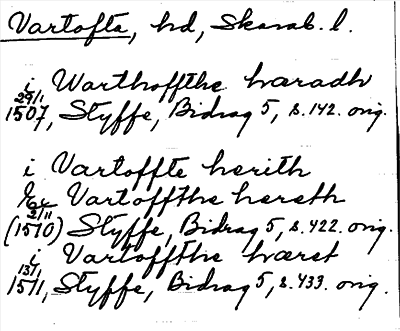 Vartofta, hd, Skarab. l.
i Warthoffthe hæradh
29/1
1507, Styffe, Bidrag 5, s. 142. orig.
i Vartoffte herith
Vartoffthe hereth
2/11
(1510) Styffe, Bidrag 5, s. 422. orig.
i Vartoffthe hæret
13/1
1511, Styffe, Bidrag 5, s. 433. orig.